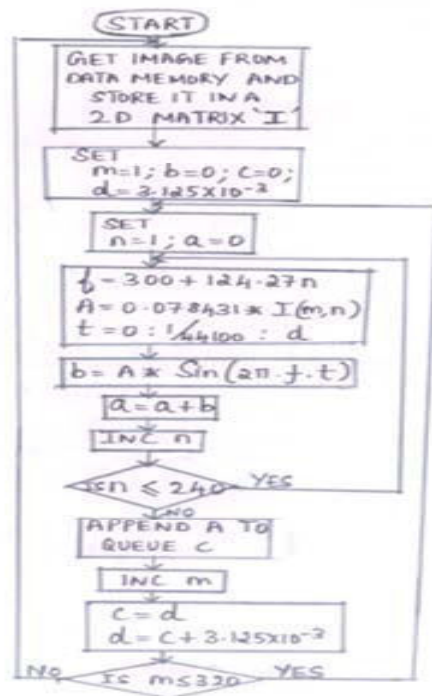 START
GET IMAGE FROM
DATA MEMORY AND
STORE IT IN A
2D MATRIX 'I'
SET
m=1; b=0; c=0;
d=3.125X10⁻³
SET
n=1; a=0
f=300+124.27n
A=0.078431* I(m,n)
t=0:1/44100:d
b=A* Sin(2π.f.t)
a=a+b
INC n
Is n ≤ 240
YES
NO
APPEND A TO
QUEUE C
INC m
c=d
d=c+3.125x10⁻³
NO
Is m≤320
YES